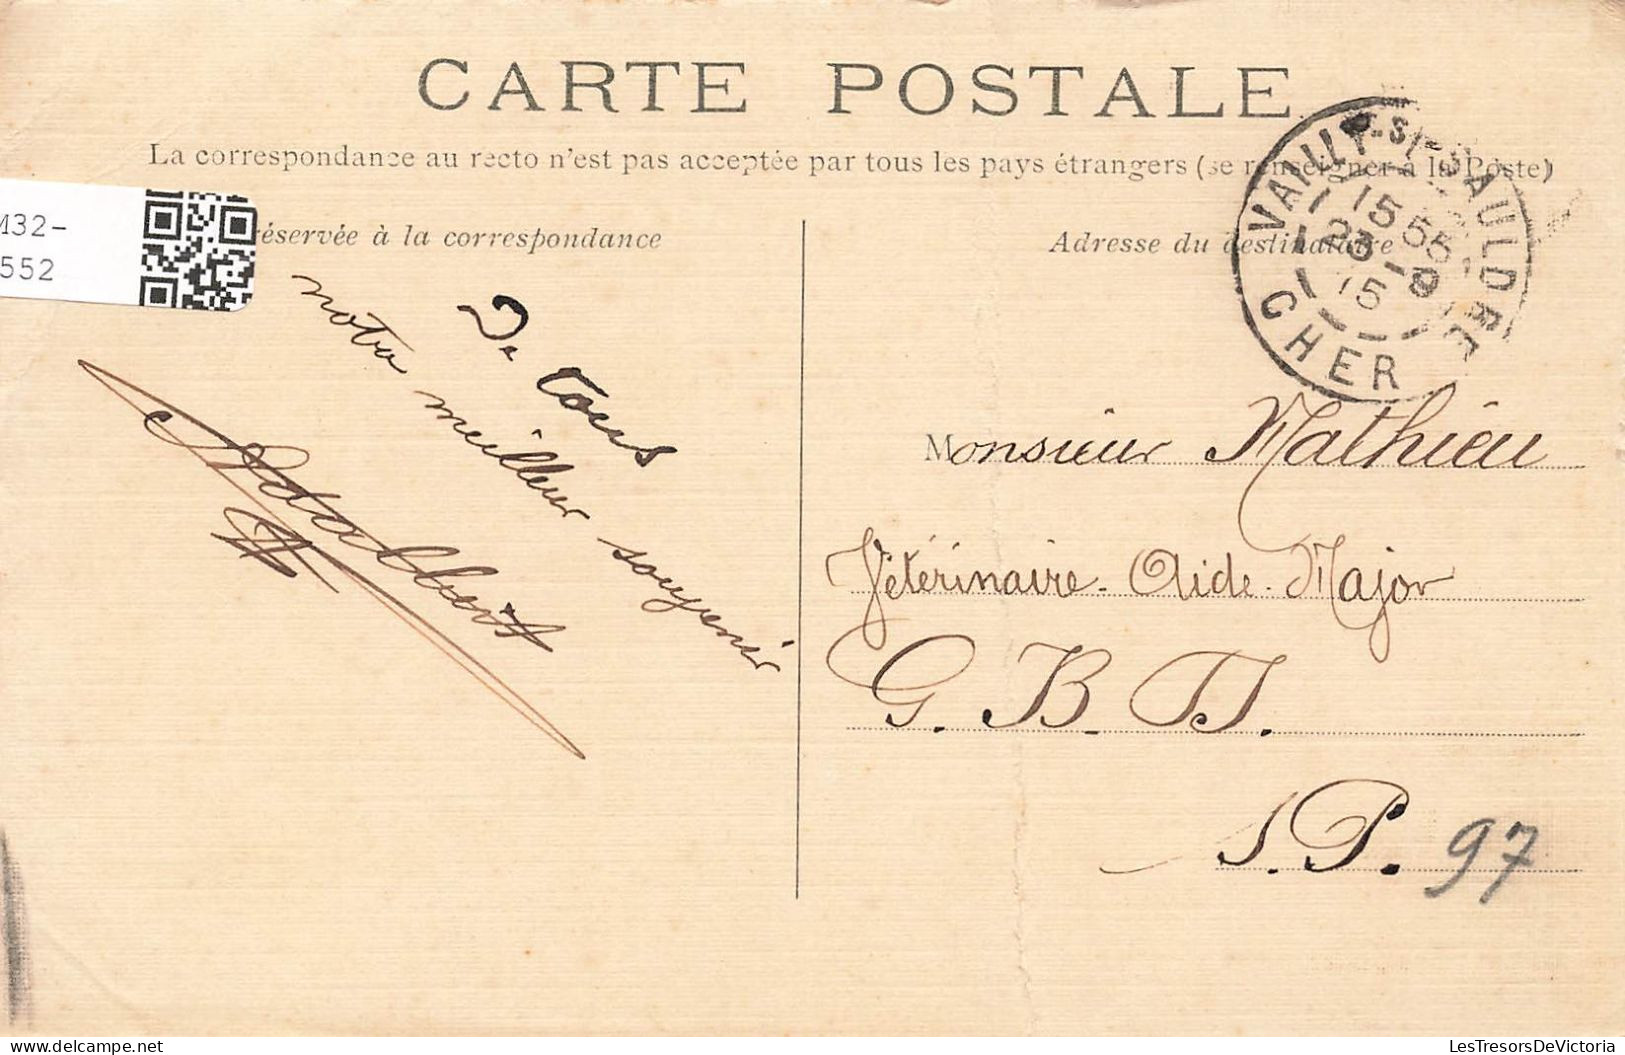 CARTE POSTALE
La correspondance au recto n'est pas acceptée par tous les pays étrangers (se renseigner à la Poste)
M32-
552
éservée à la correspondance
Adresse du destinataire
VAILLY-S-SAULDRE
15 55
23 -9
15
CHER
De tous
notre meilleur souvenir
Monsieur Mathieu
Vétérinaire-Aide-Major
G. B. T.
S.P. 97
LesTresorsDeVictoria